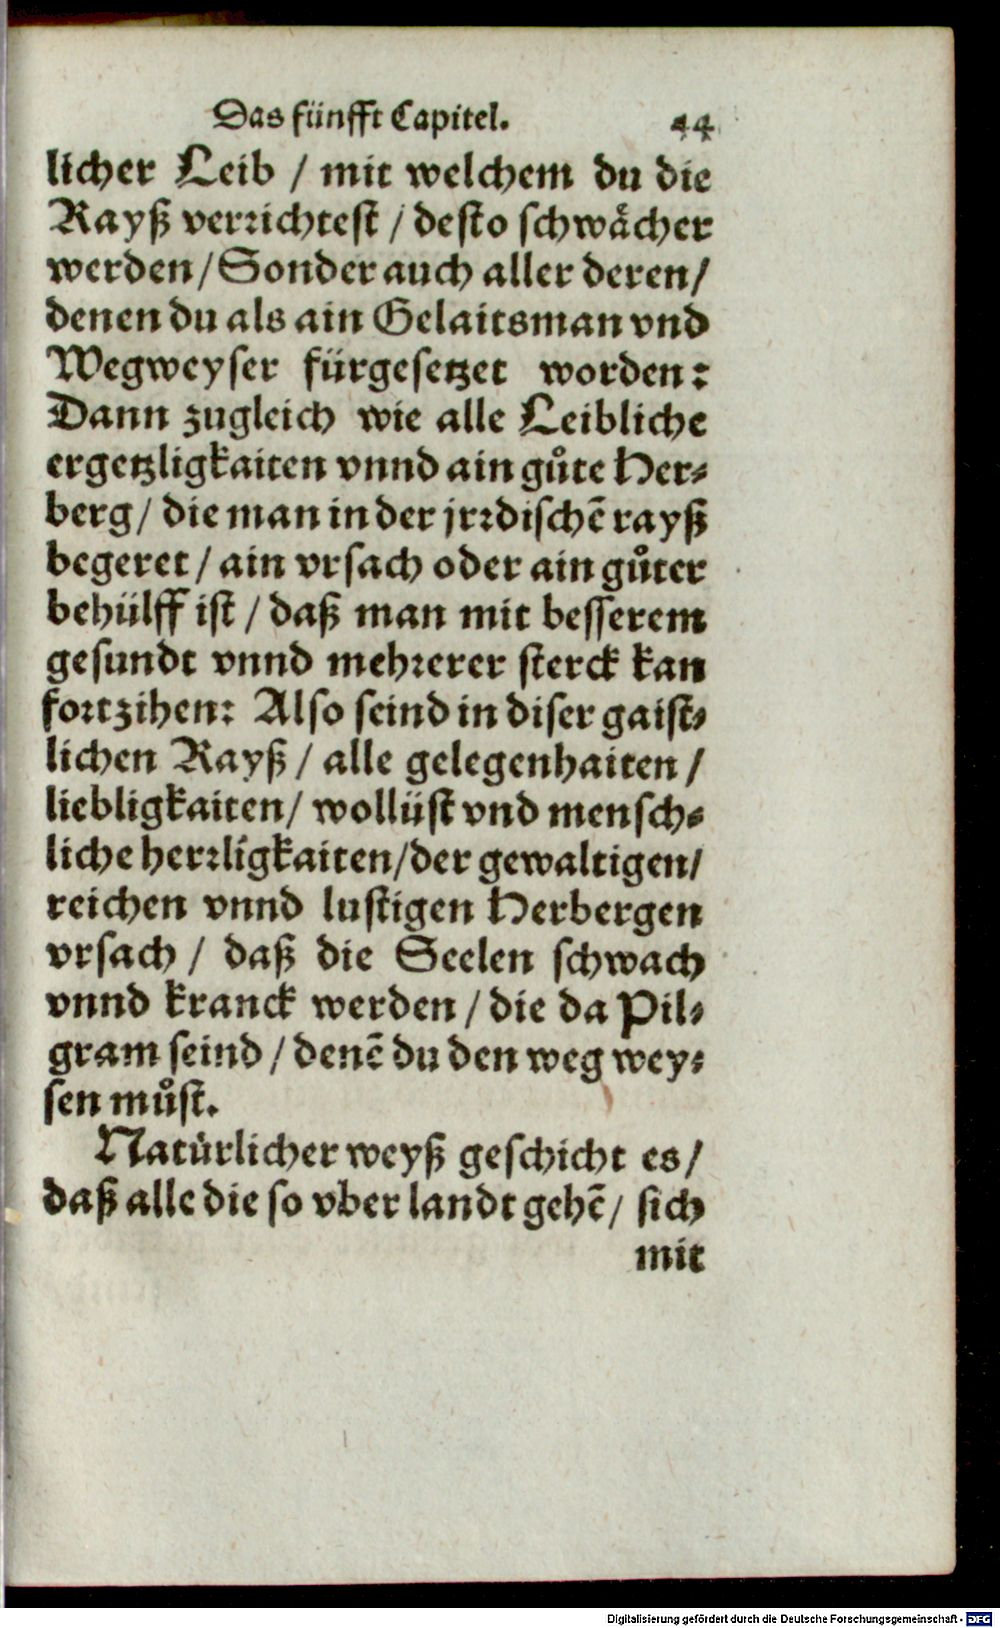 Das fünfft Capitel. 44
licher Leib / mit welchem du die
Rayß verrichtest / desto schwächer
werden / Sonder auch aller deren /
denen du als ain Gelaitsman vnd
Wegweyser fürgesetzet worden:
Dann zugleich wie alle Leibliche
ergetzligkaiten vnnd ain gůte Her⸗
berg / die man in der jrrdischē rayß
begeret / ain vrsach oder ain gůter
behülff ist / daß man mit besserem
gesundt vnnd mehrerer sterck kan
fortzihen: Also seind in diser gaist⸗
lichen Rayß / alle gelegenhaiten /
liebligkaiten / wollüst vnd mensch⸗
liche herrligkaiten / der gewaltigen /
reichen vnnd lustigen Herbergen
vrsach / daß die Seelen schwach
vnnd kranck werden / die da Pil⸗
gram seind / denē du den weg wey⸗
sen můst.
Natürlicher weyß geschicht es /
daß alle die so vber landt gehē / sich
mit
Digitalisierung gefördert durch die Deutsche Forschungsgemeinschaft - DFG